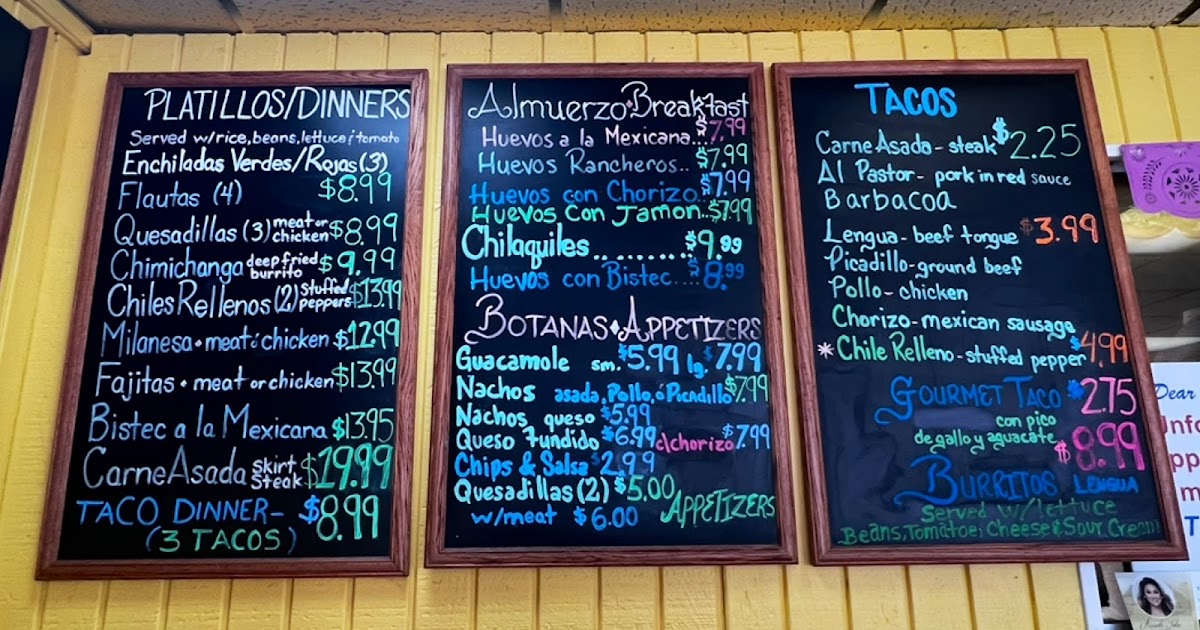 PLATILLOS/DINNERS
Served w/rice, beans, lettuce & tomato
Enchiladas Verdes/Rojas (3)
Flautas (4) $8.99
Quesadillas (3) meat or chicken $8.99
Chimichanga deep fried burrito $9.99
Chiles Rellenos (2) Stuffed peppers $13.99
Milanesa • meat & chicken $12.99
Fajitas • meat or chicken $13.99
Bistec a la Mexicana $13.95
Carne Asada skirt steak $19.99
TACO DINNER- $8.99
(3 TACOS)
Almuerzo • Breakfast
Huevos a la Mexicana... $7.99
Huevos Rancheros.. $7.99
Huevos con Chorizo.. $7.99
Huevos Con Jamon.. $7.99
Chilaquiles .......... $9.99
Huevos con Bistec.... $8.99
BOTANAS • APPETIZERS
Guacamole sm. $5.99 lg. $7.99
Nachos asada, Pollo, ó Picadillo $7.99
Nachos queso $5.99
Queso Fundido $6.99 c/chorizo $7.99
Chips & Salsa $2.99
Quesadillas (2) $5.00
w/meat $6.00 APPETIZERS
TACOS
Carne Asada - steak $2.25
Al Pastor - pork in red sauce
Barbacoa
Lengua - beef tongue $3.99
Picadillo - ground beef
Pollo - chicken
Chorizo - mexican sausage
* Chile Relleno - stuffed pepper $4.99
GOURMET TACO $2.75
con pico
de gallo y aguacate
$8.99
BURRITOS LENGUA
Served w/lettuce
Beans, Tomatoe, Cheese & Sour Cream
Dear